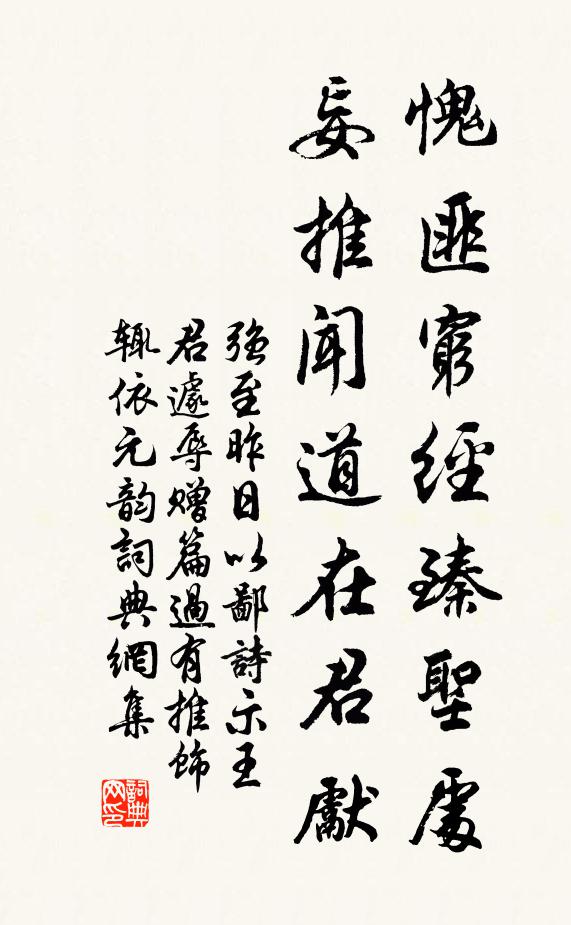 愧匪窮經臻聖處
妄推聞道在君獻
強至昨日以鄙詩示王
君遽辱贈篇過有推飾
輒依元韵詞典網集
詞典網印